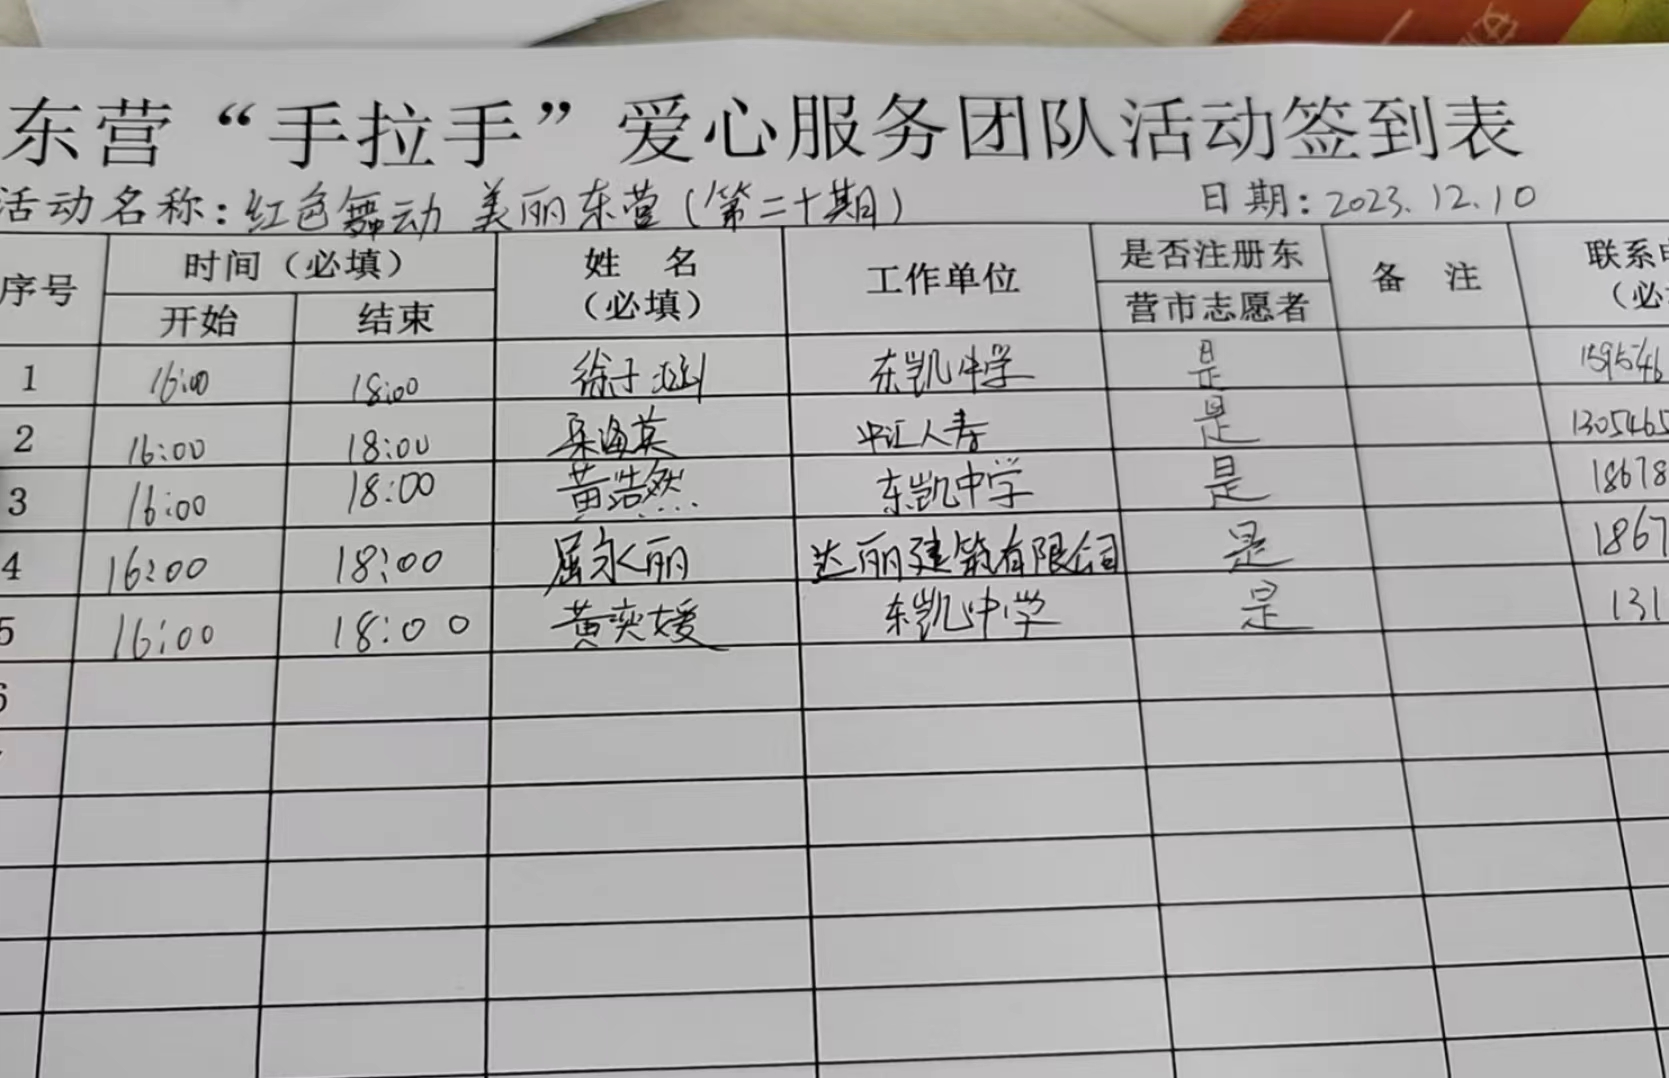 东营“手拉手”爱心服务团队活动签到表
活动名称：红色舞动 美丽东营（第二十期） 日期：2023.12.10
序号 时间（必填） 姓 名 工作单位 是否注册东 备 注 联系
开始 结束 （必填） 营市志愿者 （必
1 16:00 18:00 徐子涵 东凯中学 是 159546
2 16:00 18:00 海英 人寿 是 1305465
3 16:00 18:00 黄浩然 东凯中学 是 18678
4 16:00 18:00 屈永丽 达丽建筑有限公司 是 1867
5 16:00 18:00 黄奕媛 东凯中学 是 131
6